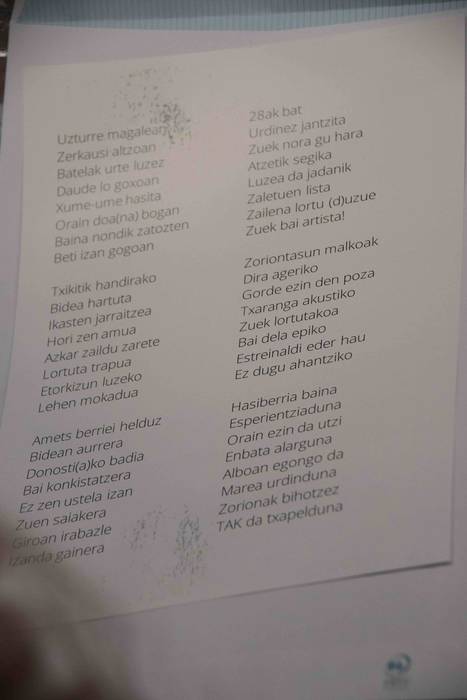 Uzturre magalean
Zerkausi altzoan
Batelak urte luzez
Daude lo goxoan
Xume-ume hasita
Orain doa(na) bogan
Baina nondik zatozten
Beti izan gogoan
Txikitik handirako
Bidea hartuta
Ikasten jarraitzea
Hori zen amua
Azkar zaildu zarete
Lortuta trapua
Etorkizun luzeko
Lehen mokadua
Amets berriei helduz
Bidean aurrera
Donosti(a)ko badia
Bai konkistatzera
Ez zen ustela izan
Zuen saiakera
Giroan irabazle
Izanda gainera
28ak bat
Urdinez jantzita
Zuek nora gu hara
Atzetik segika
Luzea da jadanik
Zaletuen lista
Zailena lortu (d)uzue
Zuek bai artista!
Zoriontasun malkoak
Dira ageriko
Gorde ezin den poza
Txaranga akustiko
Zuek lortutakoa
Bai dela epiko
Estreinaldi eder hau
Ez dugu ahantziko
Hasiberria baina
Esperientziaduna
Orain ezin da utzi
Enbata alarguna
Alboan egongo da
Marea urdinduna
Zorionak bihotzez
TAK da txapelduna